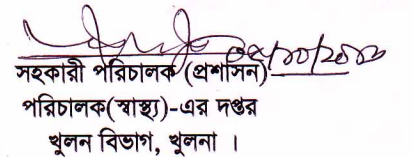 সহকারী পরিচালক (প্রশাসন)
পরিচালক(স্বাস্থ্য)-এর দপ্তর
খুলন বিভাগ, খুলনা ।